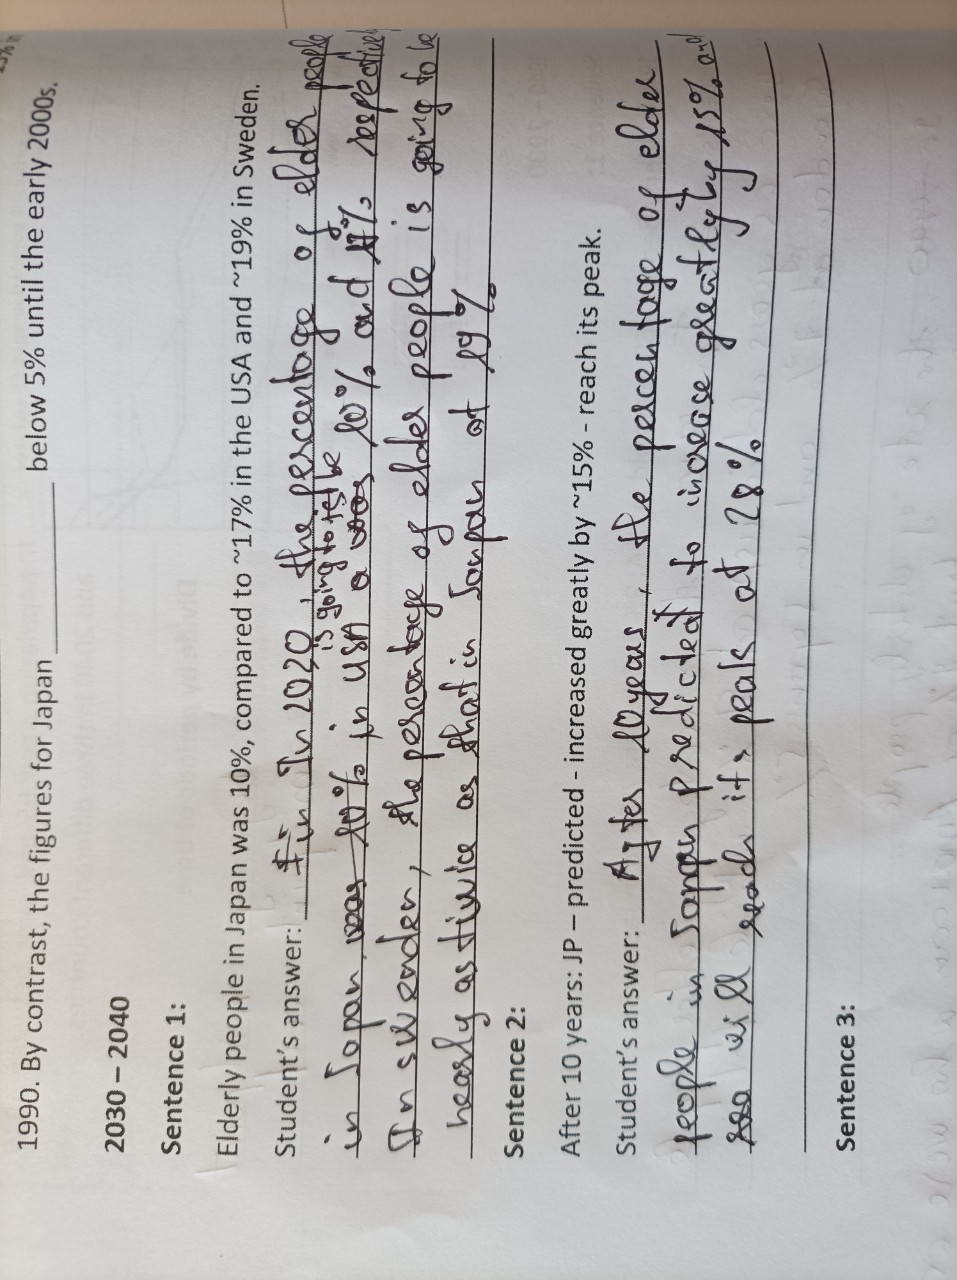 1990. By contrast, the figures for Japan ____________ below 5% until the early 2000s.
2030 – 2040
Sentence 1:
Elderly people in Japan was 10%, compared to ~17% in the USA and ~19% in Sweden.
Student's answer: In 2020, the percentage of elder people
is going to be
in Japan was 10% in USA a was 10% and 17% respective
In swenden, the percentage of elder people is going to be
nearly as tiwice as that in Jonpan at 19%
Sentence 2:
After 10 years: JP – predicted - increased greatly by ~15% - reach its peak.
Student's answer: After 10 years, the percentage of elder
people in Japan predicted to increase greatly by 15% and
will reach its peak at 28%
Sentence 3: